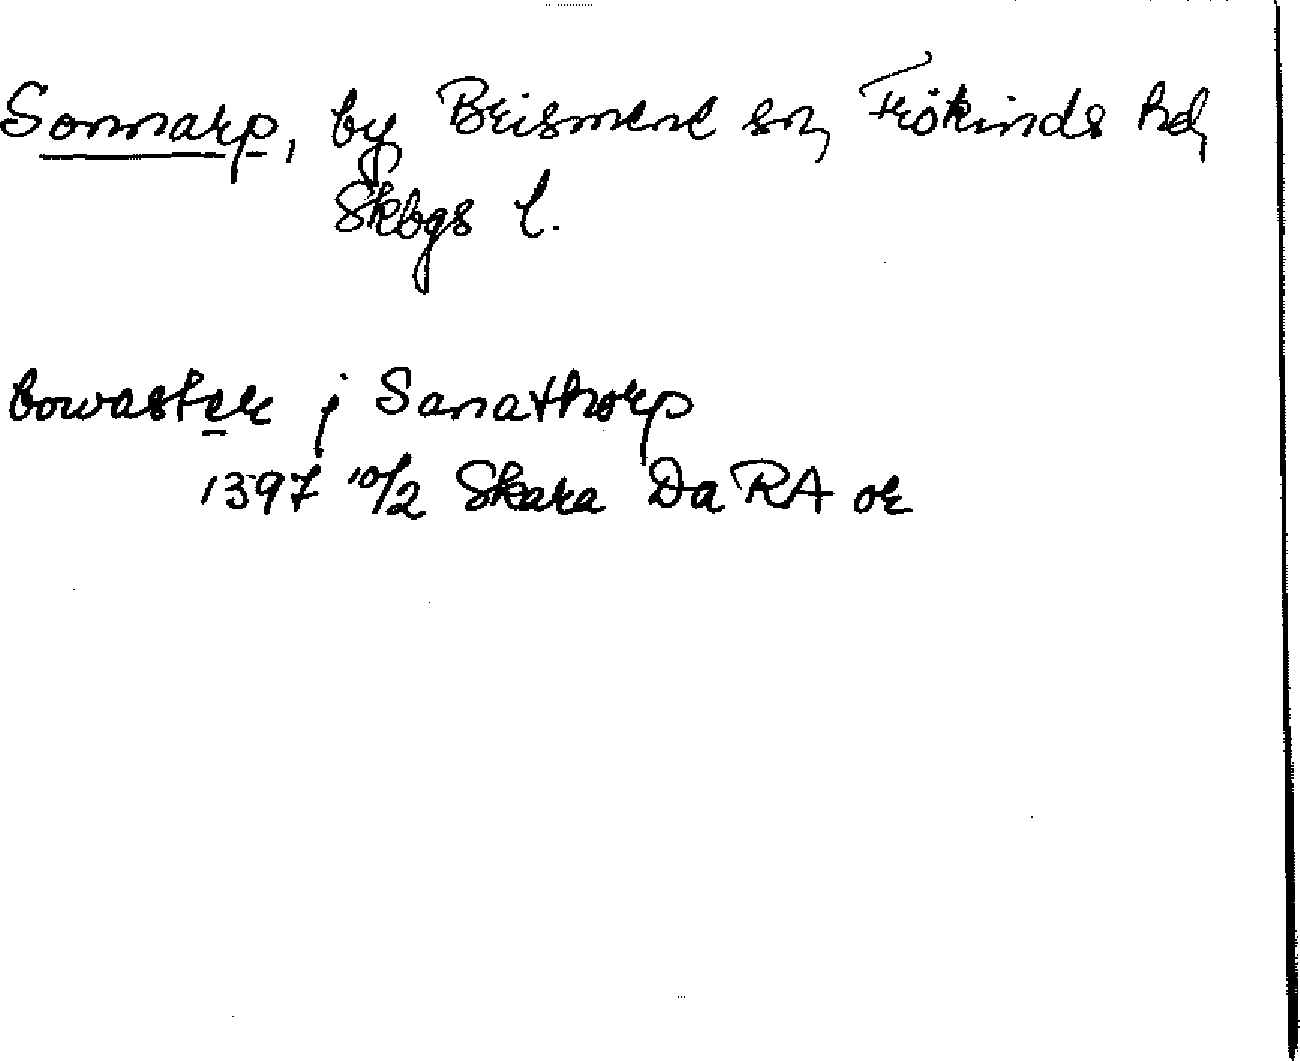 Sonnarp, by Brismene sn, Frökinds hd,
Skbgs l.
bowaster j Sanathorp
1397 10/2 Skara Da RA or